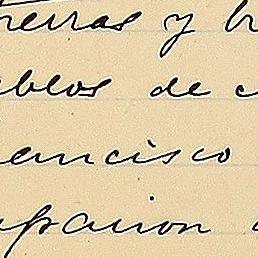 terras y b
blos de c
rancisco
upacion